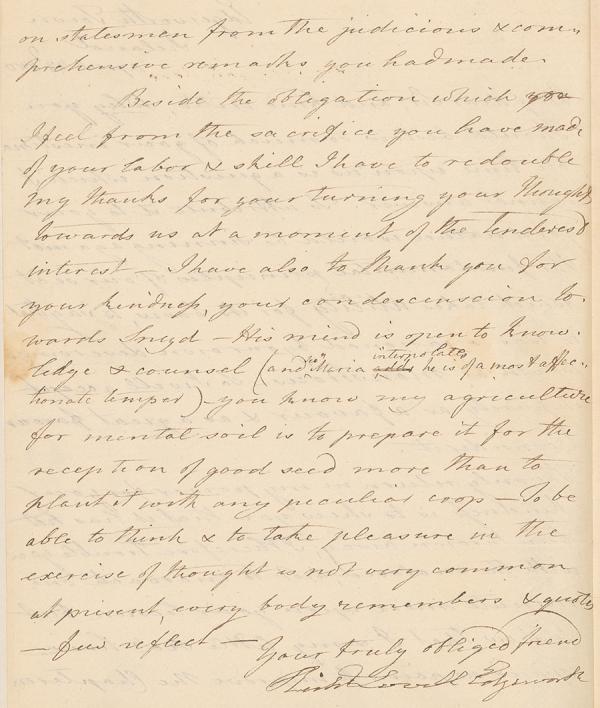 on statesmen from the judicious & com-
prehensive remarks you had made.
Beside the obligation which you
I feel from the sacrifice you have made
of your labor & skill I have to redouble
my thanks for your turning your thoughts
towards us at a moment of the tenderest
interest — I have also to thank you for
your kindness, your condescension to-
wards Sneyd — His mind is open to know-
ledge & counsel (and "Maria interpolates
adds he is of a most affec-
tionate temper) — you know my agriculture
for mental soil is to prepare it for the
reception of good seed more than to
plant it with any peculiar crop — To be
able to think & to take pleasure in the
exercise of thought is not very common
at present, every body remembers & quotes
— few reflect —
Your truly obliged friend
Richd Lovell Edgeworth